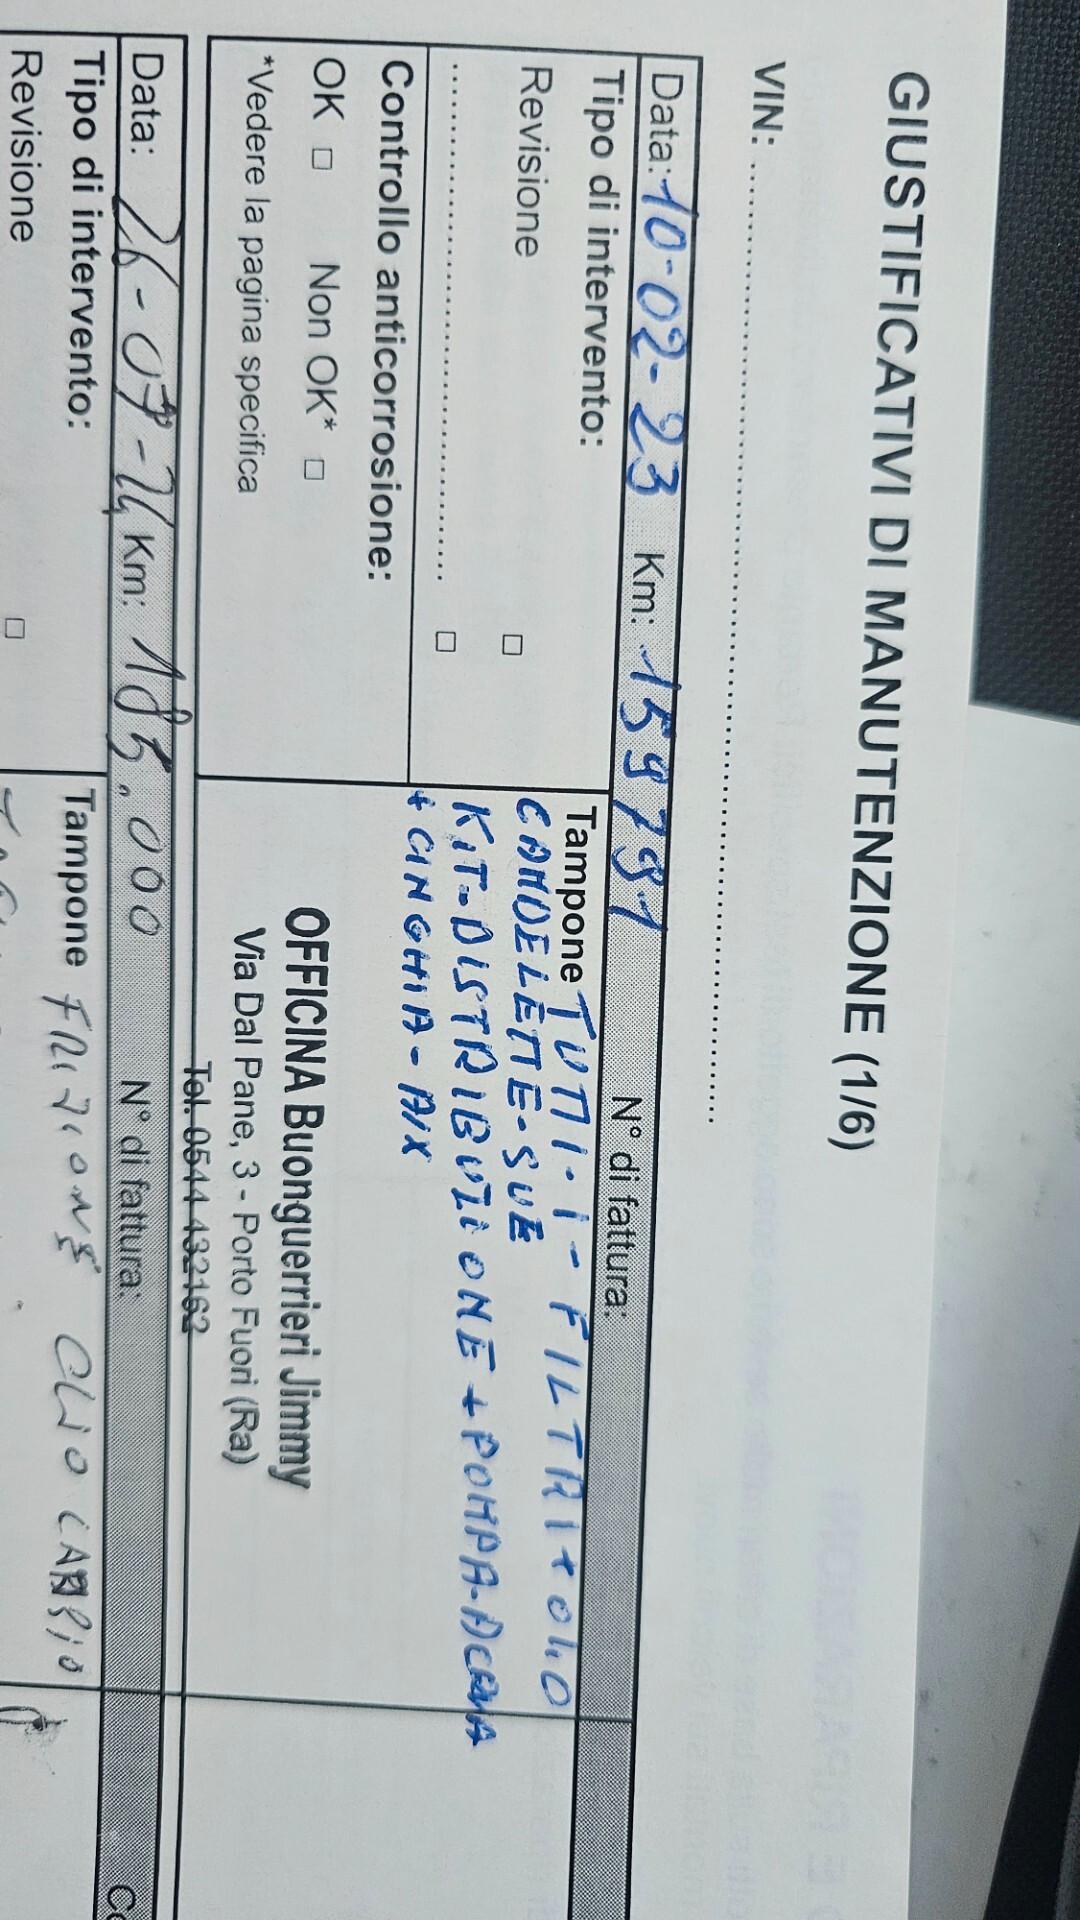 GIUSTIFICATIVI DI MANUTENZIONE (1/6)
VIN: ..........
Data: 10-02-23 Km: 159791 N° di fattura:
Tipo di intervento:
Revisione □
.......... □
Tampone TUTTI·I-FILTRI+OLIO
CANDELETTE-SUE
KIT-DISTRIBUZIONE+POMPA-ACQUA
+CINGHIA-AUX
Controllo anticorrosione:
OK □ Non OK* □
*Vedere la pagina specifica
OFFICINA Buonguerrieri Jimmy
Via Dal Pane, 3 - Porto Fuori (Ra)
Tel. 0544 432162
Data: 26-07-24 Km: 185.000 N° di fattura:
Tipo di intervento:
Revisione □
Tampone FRIZIONE OLIO CAMBIO